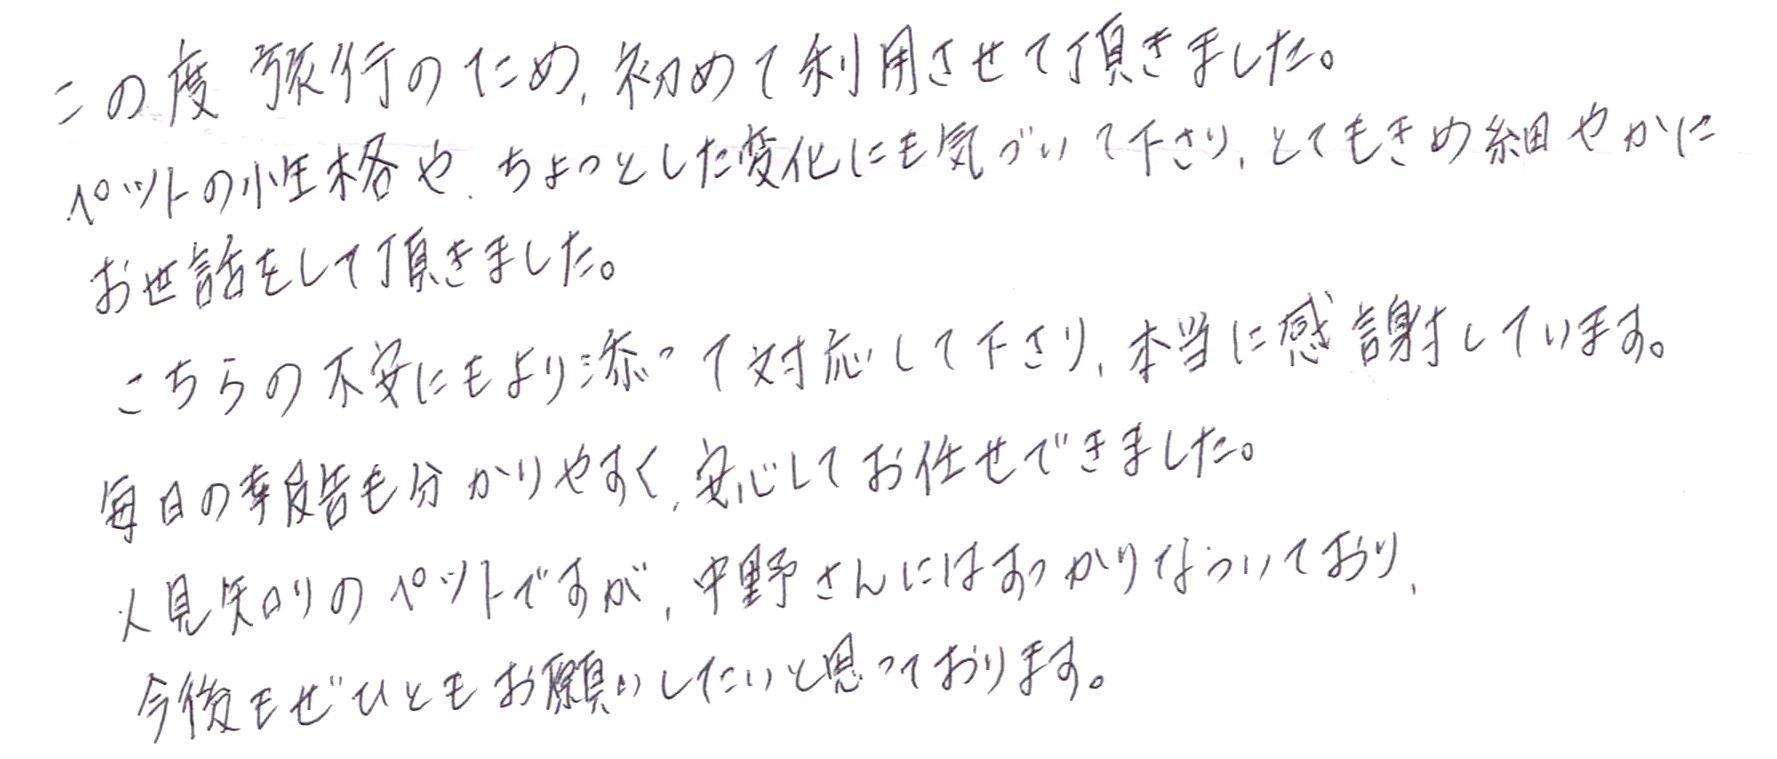 この度 旅行のため、初めて利用させて頂きました。
ペットの性格や、ちょっとした変化にも気づいて下さり、とてもきめ細やかに
お世話をして頂きました。
こちらの不安にもより添って対応して下さり、本当に感謝しています。
毎日の報告も分かりやすく、安心してお任せできました。
人見知りのペットですが、中野さんにはすっかりなついており、
今後もぜひともお願いしたいと思っております。